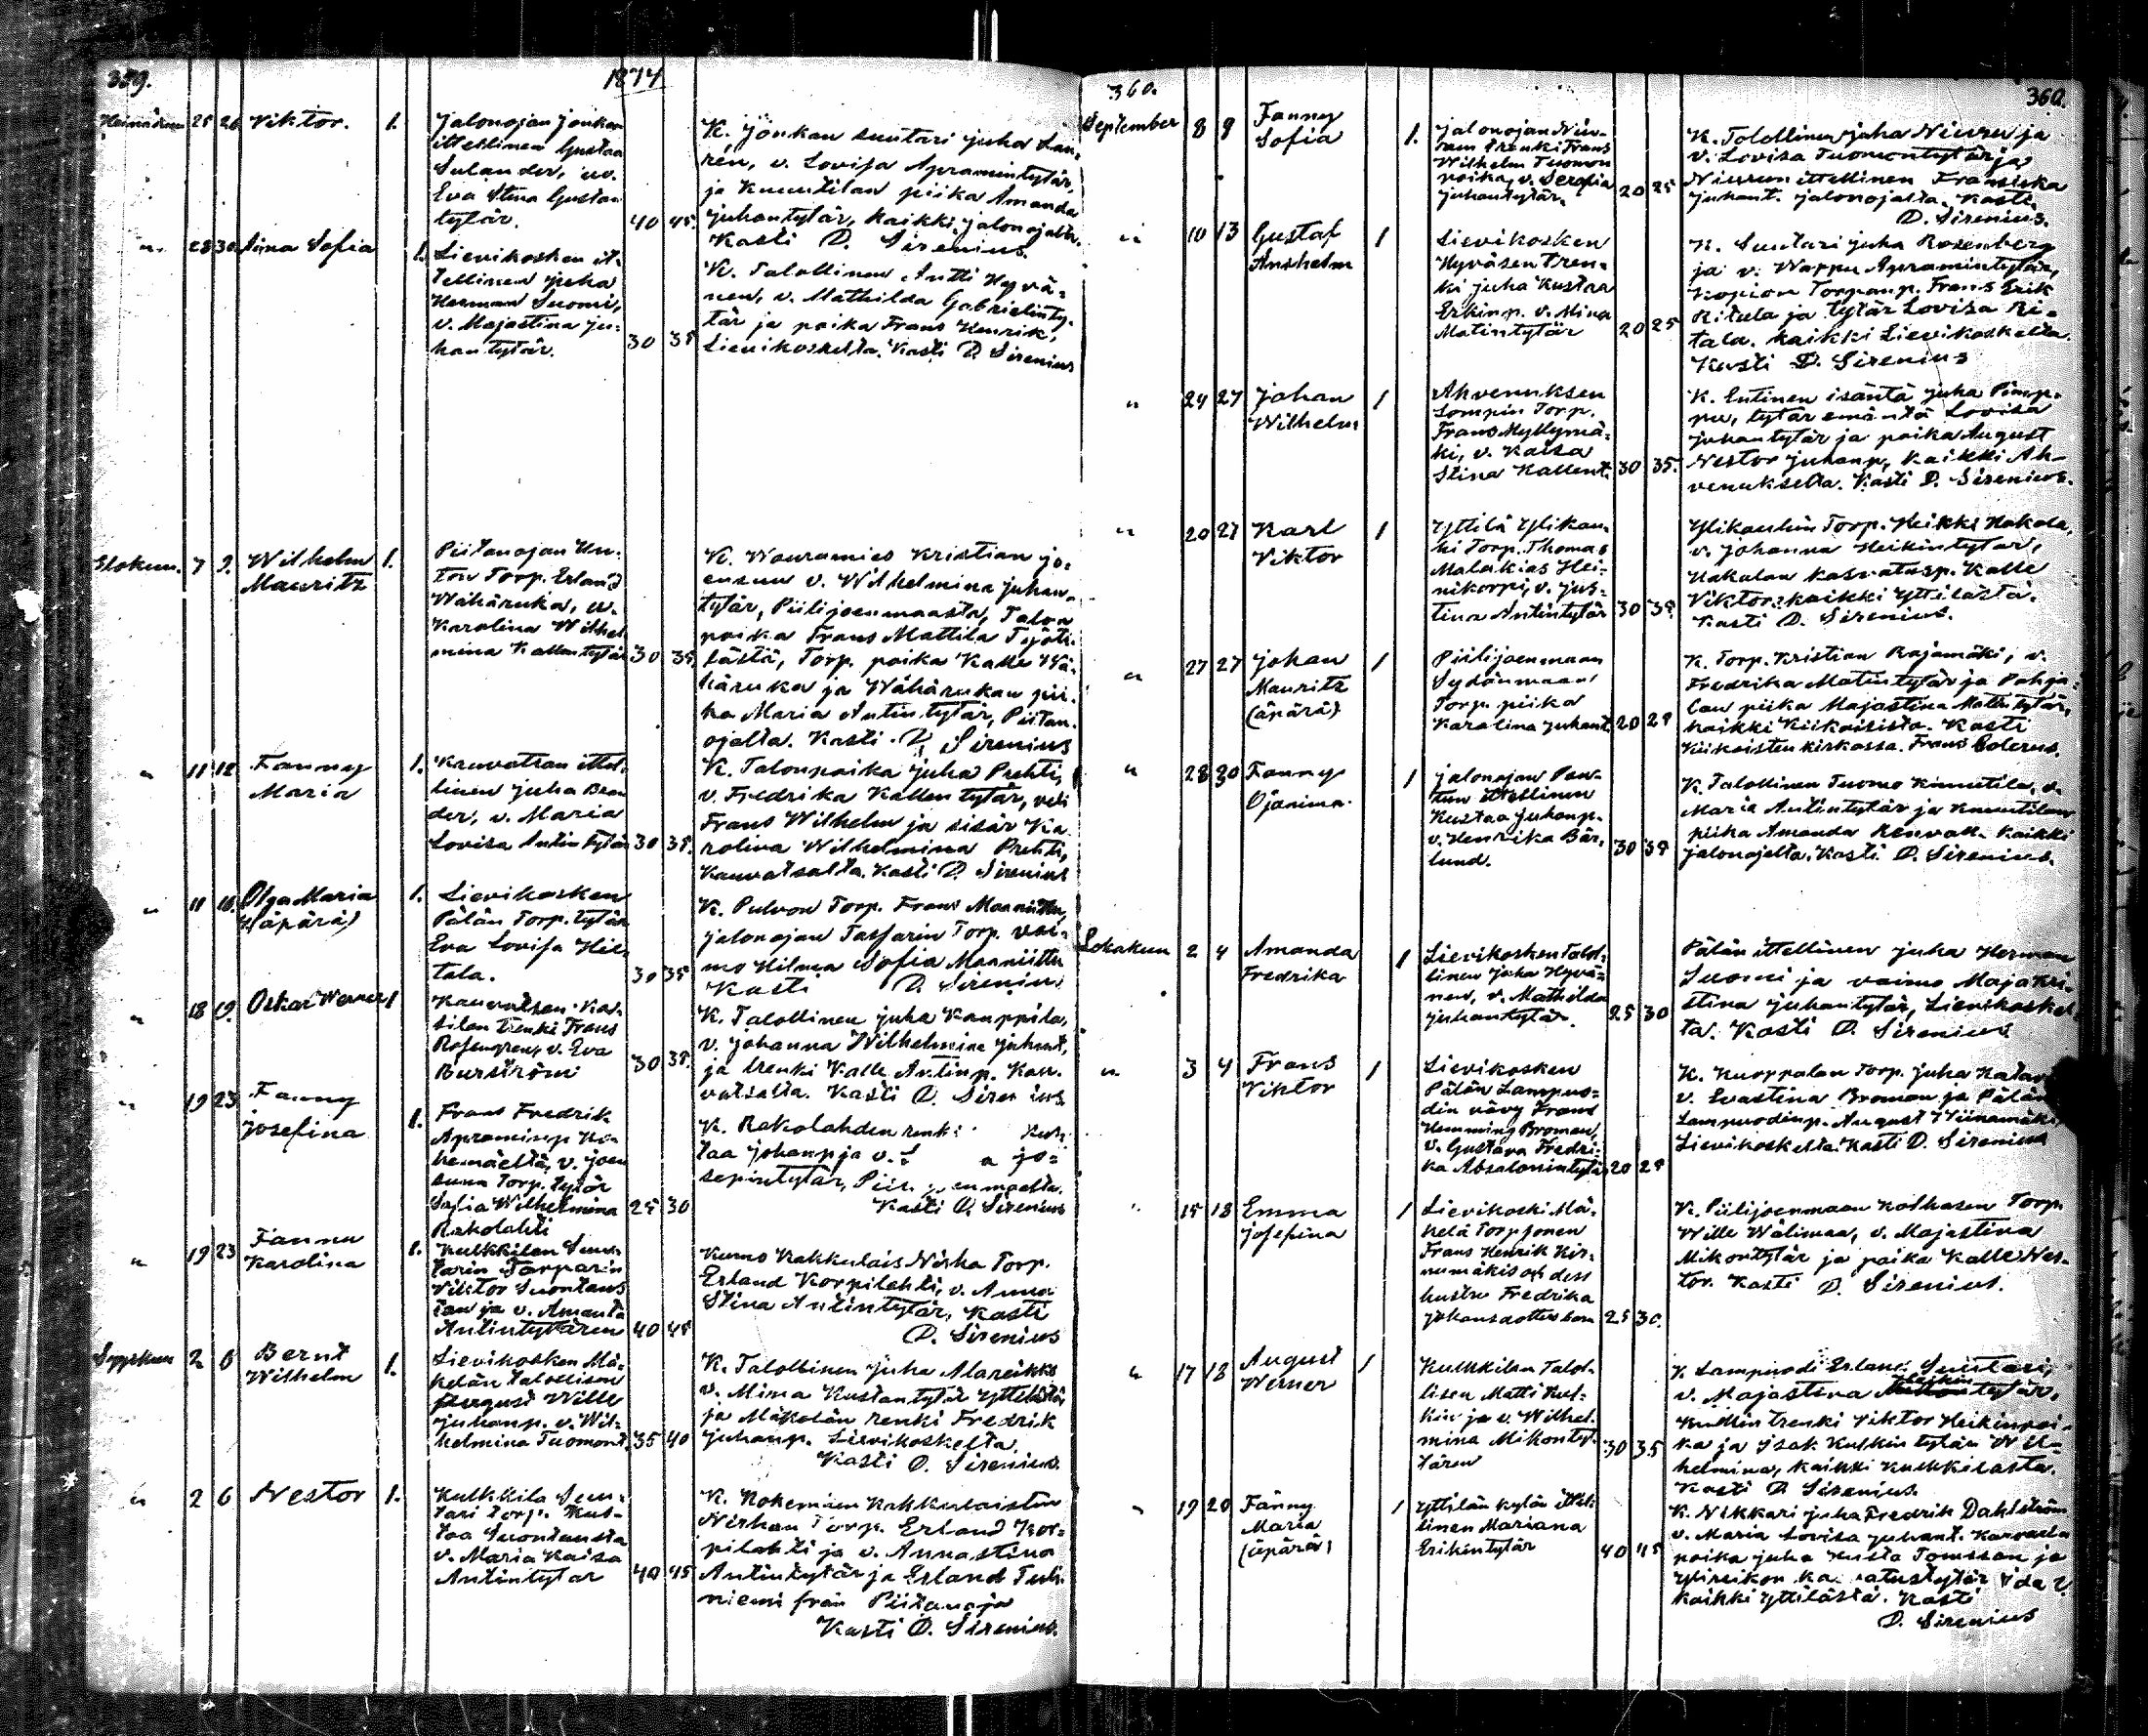 359.
1874
Heinäkuu 25 26 Viktor. 1.
Jalonojan Jonkan
ittellinen Gustaa
Sulander, w.
Eva Stina Gustan
tytär. 40 45.
K. Jonkan suutari Juha Lau-
rén, v. Lovisa Apramintytär,
ja Knuutilan piika Amanda
Juhantytär, kaikki Jalonojalta.
Kasti D. Sirenius.
" 28 30 Sofia 1.
Lievikosken it-
tellinen Juha
Herman Suomi,
v. Majastina Ju-
hantytär. 30 35
K. Talollinen Antti Hyvä-
nen, v. Mathilda Gabrielinty-
tär ja poika Frans Henrik,
Lievikoskelta. Kasti D. Sirenius
Elokuu. 7 9. Wilhelm 1.
Mauritz
Piitanojan
Torp. Erland
Wähäruka, w.
Karolina Wilhel
mina Kallentytär 30 35
K. Wouramies Kristian Jo-
ensuu v. Wilhelmina Juhan-
tytär, Piilijoenmaasta, Talon
poika Frans Mattila
Torp. poika Kalle Wä-
häruka ja Wähärukan pii-
ka Maria Antintytär, Piitan-
ojalta. Kasti D. Sirenius
" 11 12 Fanny 1.
Maria
Kauvatsan ittel-
linen Juha
der, v. Maria
Lovisa Antintytär 30 35.
K. Talonpoika Juha Prehti,
v. Fredrika Kallentytär, veli
Frans Wilhelm ja sisär Ka
rolina Wilhelmina Prehti,
Kauvatsalta. Kasti D. Sirenius
" 11 16. Olga Maria 1.
(äpärä)
Lievikosken
Pälän Torp. tytär
Eva Lovisa Hie-
tala. 30 35
K. Pulvon Torp. Frans Maaniittu,
Jalonojan Torp. vai-
mo Hilma Sofia Maaniittu
Kasti D. Sirenius
" 18 19. Oskar Werner 1
Kauvatsan
silan trenki Frans
Rosengren, v. Eva
Burström 30 35.
K. Talollinen Juha Kauppila,
v. Johanna Wilhelmina Juhant.
ja trenki Kalle Antinp. Kau-
vatsalta. Kasti D. Sirenius
" 19 23 Fanny
Josefina 1.
Frans Fredrik
Apraminp. Ko-
kemäeltä, v. Joen
suun Torp. tytär
Sofia Wilhelmina 25 30
Rakolahti
K. Rakolahden renki
taa Johanp ja v. Jo-
sepintytär,
Kasti D. Sirenius
" 19 23 Fanni 1.
Karolina
Kulkkilan Suu-
tarin Torparin
Viktor Suontaus
tan ja v. Amanta
Antintytären 40 45
Kumo Kakkulais Nirha Torp.
Erland Korpilehti, v. Anna
Stina Antintytär, Kasti
D. Sirenius
Syyskuu 2 6 Bernt
Wilhelm 1.
Lievikosken Mä-
kelän talollisen
August Wille
Juhanp. v. Wil-
helmina Tuomont. 35 40
K. Talollinen Juha Alareikko
v. Miina Kustantytär Yttilästä
ja Mäkelän renki Fredrik
Juhanp. Lievikoskelta.
Kasti D. Sirenius
" 2 6 Nestor 1.
Kulkkila Suu-
tari torp. Kus-
taa Suontausta
v. Maria Kaisa
Antintytar 40 45
K. Kokemäen Kakkulaisten
Nirhan Torp. Erland Kor-
pilehti ja v. Annastina
Antintytär ja Erland
niemi från Piitanoja
Kasti D. Sirenius.
360.
360.
September 8 9 Fanny
Sofia 1.
Jalonojan Niu-
ran trenki Frans
Wilhelm Tuomon
poika, v. Serafia
Juhantytär. 20 25
K. Talollinen Juha Niuru ja
v. Lovisa Tuomontytär ja
Niurun ittellinen Fransiska
Juhant. Jalonojalta. Kasti
D. Sirenius.
" 10 13 Gustaf 1
Anshelm
Lievikosken
Hyväsen tren-
ki Juha Kustaa
Erkinp. v. Miina
Matintytär 20 25
K. Suutari Juha Rosenberg
ja v. Wappu Apramintytär,
Kopion Torpanp. Frans Erik
Ritala ja tytär Lovisa Ri-
tala. kaikki Lievikoskelta.
Kasti D. Sirenius
" 24 27 Johan 1
Wilhelm
Ahvenuksen
Sompin Torp.
Frans Myllymä-
ki, v. Kaisa
Stina Kallent. 30 35.
K. Entinen isäntä Juha Pimp-
pu, tytär emäntä Lovisa
Juhantytär ja poika August
Nestor Juhanp. Kaikki Ah-
venukselta. Kasti D. Sirenius.
" 20 27 Karl 1
Viktor
Yttilä Ylikau-
hi Torp. Thomas
Malakias Hei-
nikorpi, v. Jus-
tina Antintytär 30 35
Ylikauhin Torp. Heikki Hakala,
v. Johanna Heikintytär,
Hakalan kasvatusp. Kalle
Viktor, kaikki Yttilästä.
Kasti D. Sirenius.
" 27 27 Johan 1
Mauritz
(äpärä)
Piilijoenmaan
Sydänmaan
Torp. piika
Karolina Juhant 20 25
K. Torp. Kristian Rajamäki, v.
Fredrika Matintytär ja Pohja-
lan piika Majastina Matintytär,
kaikki Kiikoisista. Kasti
Kiikoisten kirkossa. Frans Golerus.
" 28 30 Fanny 1
Ojanima.
Jalonojan
ittellinen
Kustaa Juhanp.
v. Henrika Bär-
lund. 30 35
K. Talollinen Tuomo Knuutila, v.
Maria Antintytär ja Knuutilan
piika Amanda kaikki
Jalonojalta. Kasti D. Sirenius.
Lokakuu 2 4 Amanda 1
Fredrika
Lievikosken talol-
linen Juha Hyvä-
nen, v. Mathilda
Juhantytär. 25 30
Pälän ittellinen Juha Herman
Suomi ja vaimo Maja Kri-
stina Juhantytär, Lievikoskel-
ta. Kasti D. Sirenius
" 3 4 Frans 1
Viktor
Lievikosken
Pälän Lampuo-
din vävy Frans
Hemming Broman,
v. Gustava Fredri-
ka Absalonintytär 20 25
K. Kuoppalan Torp. Juha
v. Evastina Broman ja Pälän
Lampuodinp. August Viinamäki,
Lievikoskelta Kasti D. Sirenius
" 15 18 Emma 1
Josefina
Lievikoski Mä-
kelä Torp
Frans Henrik Kir-
numäkis och dess
hustru Fredrika
Johansdotters barn 25 30.
K. Piilijoenmaan Torp.
Wille Wälimaa, v. Majastina
Mikontytär ja poika Kalle Nes-
tor. Kasti D. Sirenius.
" 17 18 August 1
Werner
Kulkkilan Talol-
lisen Matti Kul-
kin ja v. Wilhel-
mina Mikonty- 30 35
tären
K. Lampuodi Erland Suutari,
v. Majastina Heikintytär,
trenki Viktor Heikinpoi-
ka ja Isak Kulkin tytär Wil-
helmina, kaikki Kulkkilasta.
Kasti D. Sirenius
" 19 20 Fanny 1
Maria
(äpärä)
Yttilän kylän ittel-
linen Mariana
Erikintytär 40 45
K. Nikkari Juha Fredrik Dahlström
v. Maria Lovisa Juhant.
poika Juha Kusta Tomssan ja
kaikki Yttilästä. Kasti
D. Sirenius